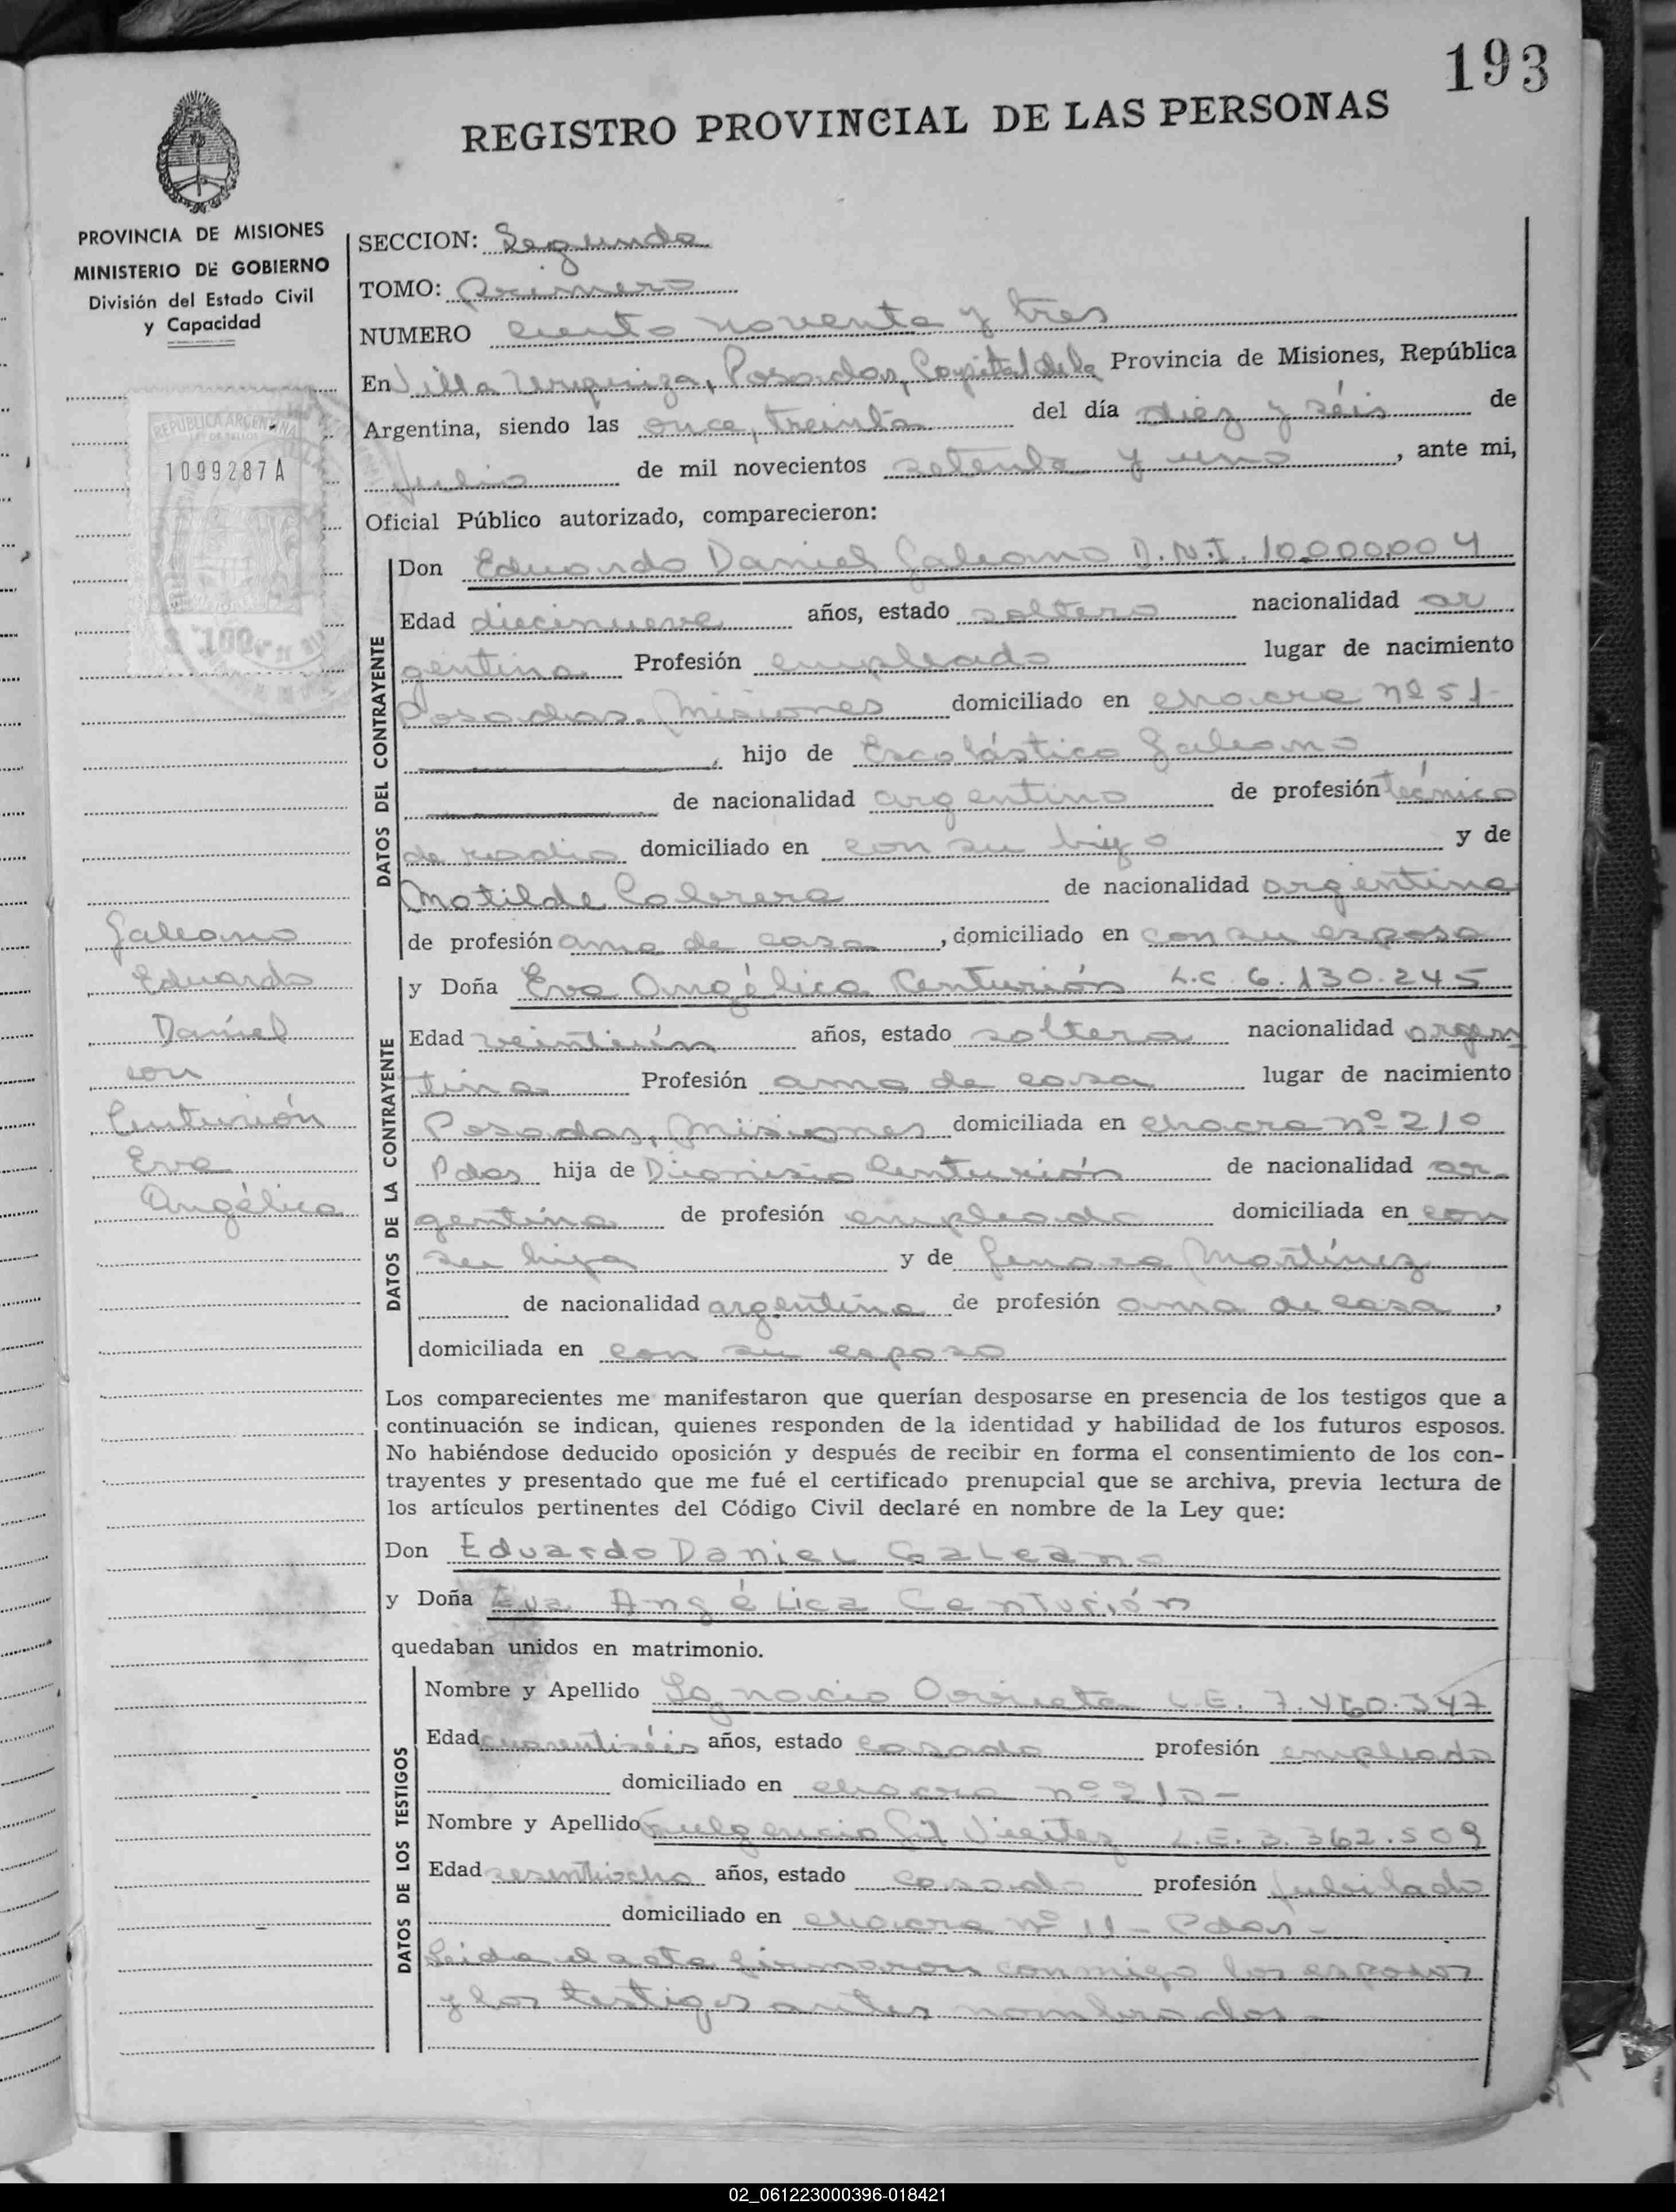 193
REGISTRO PROVINCIAL DE LAS PERSONAS
PROVINCIA DE MISIONES
MINISTERIO DE GOBIERNO
División del Estado Civil
y Capacidad
REPUBLICA ARGENTINA
LEY DE SELLOS
1099287A
$ 100
Galeano
Eduardo
Daniel
con
Centurión
Eva
Angélica
SECCION: Segunda
TOMO: Primero
NUMERO ciento noventa y tres
En Villa Urquiza, Posadas, Capital de la Provincia de Misiones, República
Argentina, siendo las once, treinta del día diez y séis de
Julio de mil novecientos setenta y uno, ante mi,
Oficial Público autorizado, comparecieron:
DATOS DEL CONTRAYENTE
Don Eduardo Daniel Galeano D.N.I. 10.000.004
Edad diecinueve años, estado soltero nacionalidad ar
gentina Profesión empleado lugar de nacimiento
Posadas, Misiones domiciliado en chacra nº 51-
, hijo de Escolástico Galeano
de nacionalidad argentino de profesión técnico
de radio domiciliado en con su hijo y de
Matilde Cabrera de nacionalidad argentina
de profesión ama de casa, domiciliado en con su esposo
DATOS DE LA CONTRAYENTE
y Doña Eva Angélica Centurión L.C. 6.130.245
Edad veintiún años, estado soltera nacionalidad argen
tina Profesión ama de casa lugar de nacimiento
Posadas, Misiones domiciliada en chacra nº 210
Pdas hija de Dionisio Centurión de nacionalidad ar-
gentina de profesión empleado domiciliada en con
su hija y de Genara Martínez
de nacionalidad argentina de profesión ama de casa,
domiciliada en con su esposo
Los comparecientes me manifestaron que querían desposarse en presencia de los testigos que a
continuación se indican, quienes responden de la identidad y habilidad de los futuros esposos.
No habiéndose deducido oposición y después de recibir en forma el consentimiento de los con-
trayentes y presentado que me fué el certificado prenupcial que se archiva, previa lectura de
los artículos pertinentes del Código Civil declaré en nombre de la Ley que:
Don Eduardo Daniel Galeano
y Doña Eva Angélica Centurión
quedaban unidos en matrimonio.
DATOS DE LOS TESTIGOS
Nombre y Apellido Ignacio Orrieta L.E. 7.460.347
Edad cuarentiséis años, estado casado profesión empleado
domiciliado en chacra nº 210-
Nombre y Apellido Fulgencio Gil Vieitez L.E. 3.362.509
Edad sesentiocho años, estado casado profesión jubilado
domiciliado en chacra nº 11 - Pdas -
Leída el acta firmaron conmigo los esposos
y los testigos antes nombrados -
02_061223000396-018421